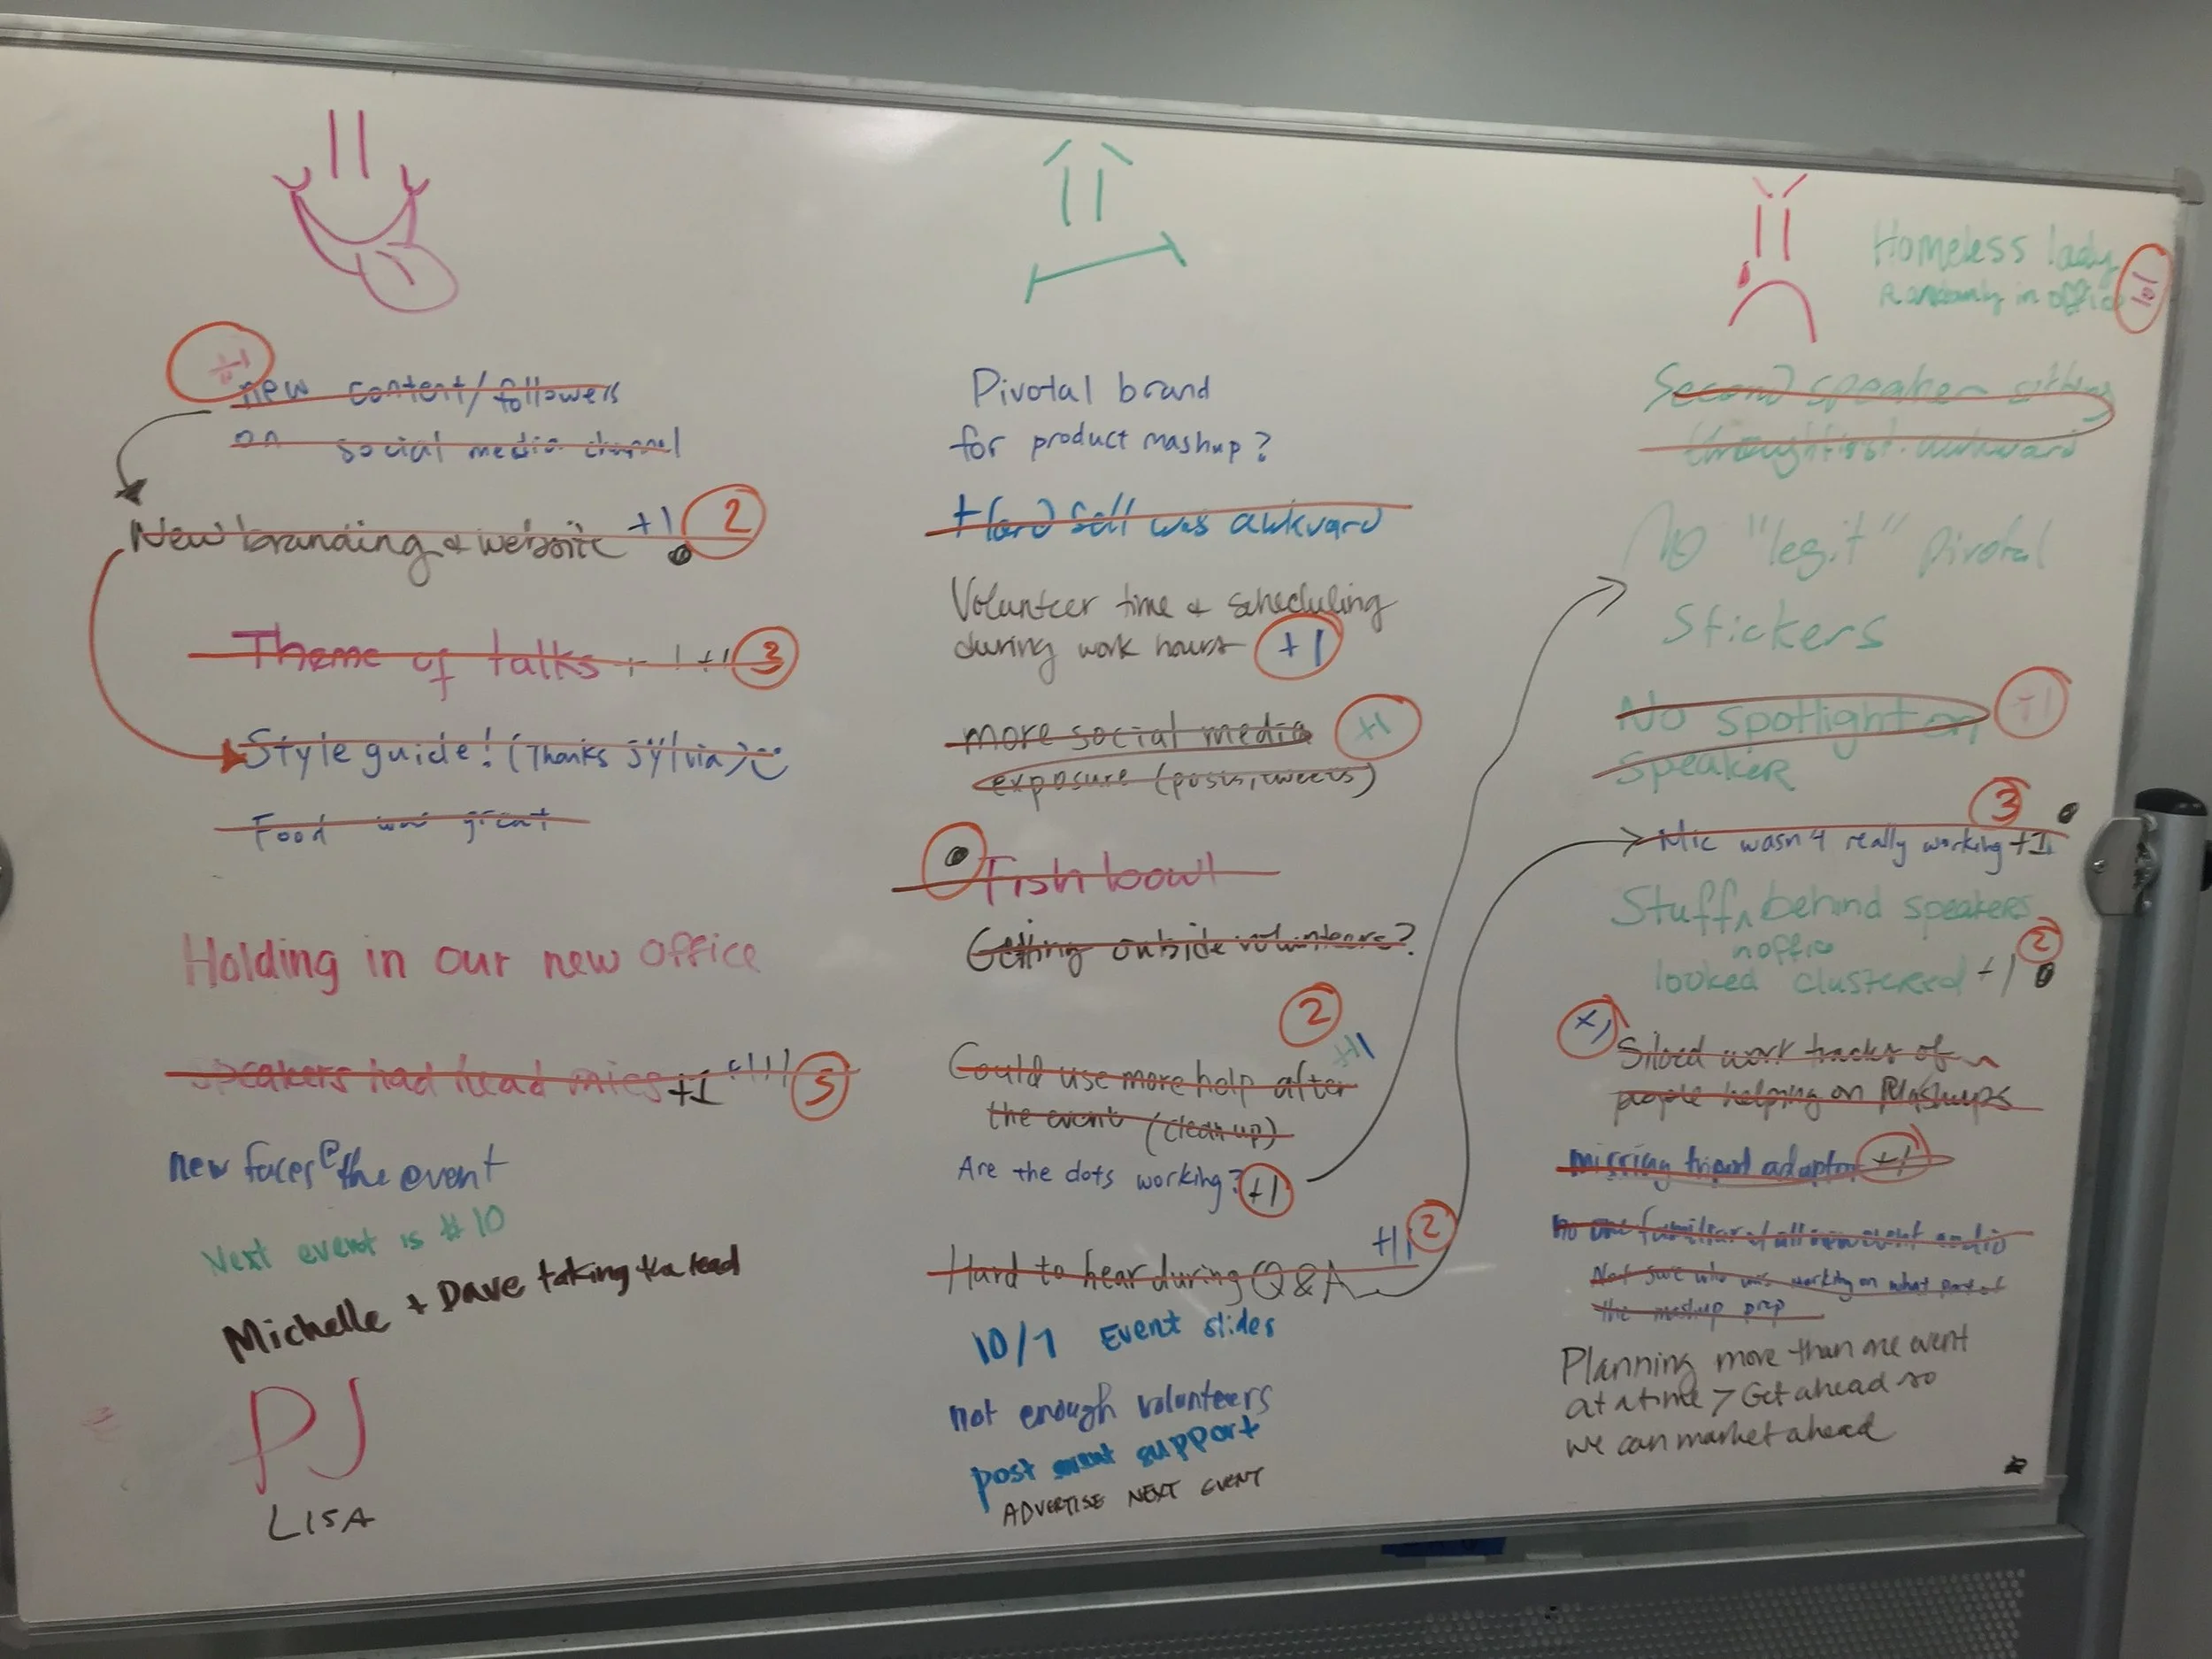 new content/followers
on social media channel
New branding & website +1 2
Theme of talks + 1 +1 3
Style guide! (Thanks Sylvia)
Food was great
Holding in our new office
speakers had head mics +1 5
new faces @ the event
Next event is #10
Michelle + Dave taking the lead
PJ
LISA
Pivotal brand
for product mashup?
Hard sell was awkward
Volunteer time & scheduling
during work hours +1
more social media +1
exposure (posts, tweets)
Fish bowl
Getting outside volunteers?
2
Could use more help after
the event (clean up)
Are the dots working? +1
+1 2
Hard to hear during Q&A
10/7 Event slides
not enough volunteers
post event support
ADVERTISE NEXT EVENT
Homeless lady
Randomly in office
lol
Second speaker sitting
through first. awkward
No "legit" Pivotal
Stickers
No spotlight on +1
Speaker
3
Mic wasn't really working +1
Stuff behind speakers
in office 2
looked clustered +1
+1
Siloed work tracks of
people helping on Mashups
missing tripod adaptor +1
Not sure who was working on what part of
the mashup prep
Planning more than one event
at a time > Get ahead so
we can market ahead